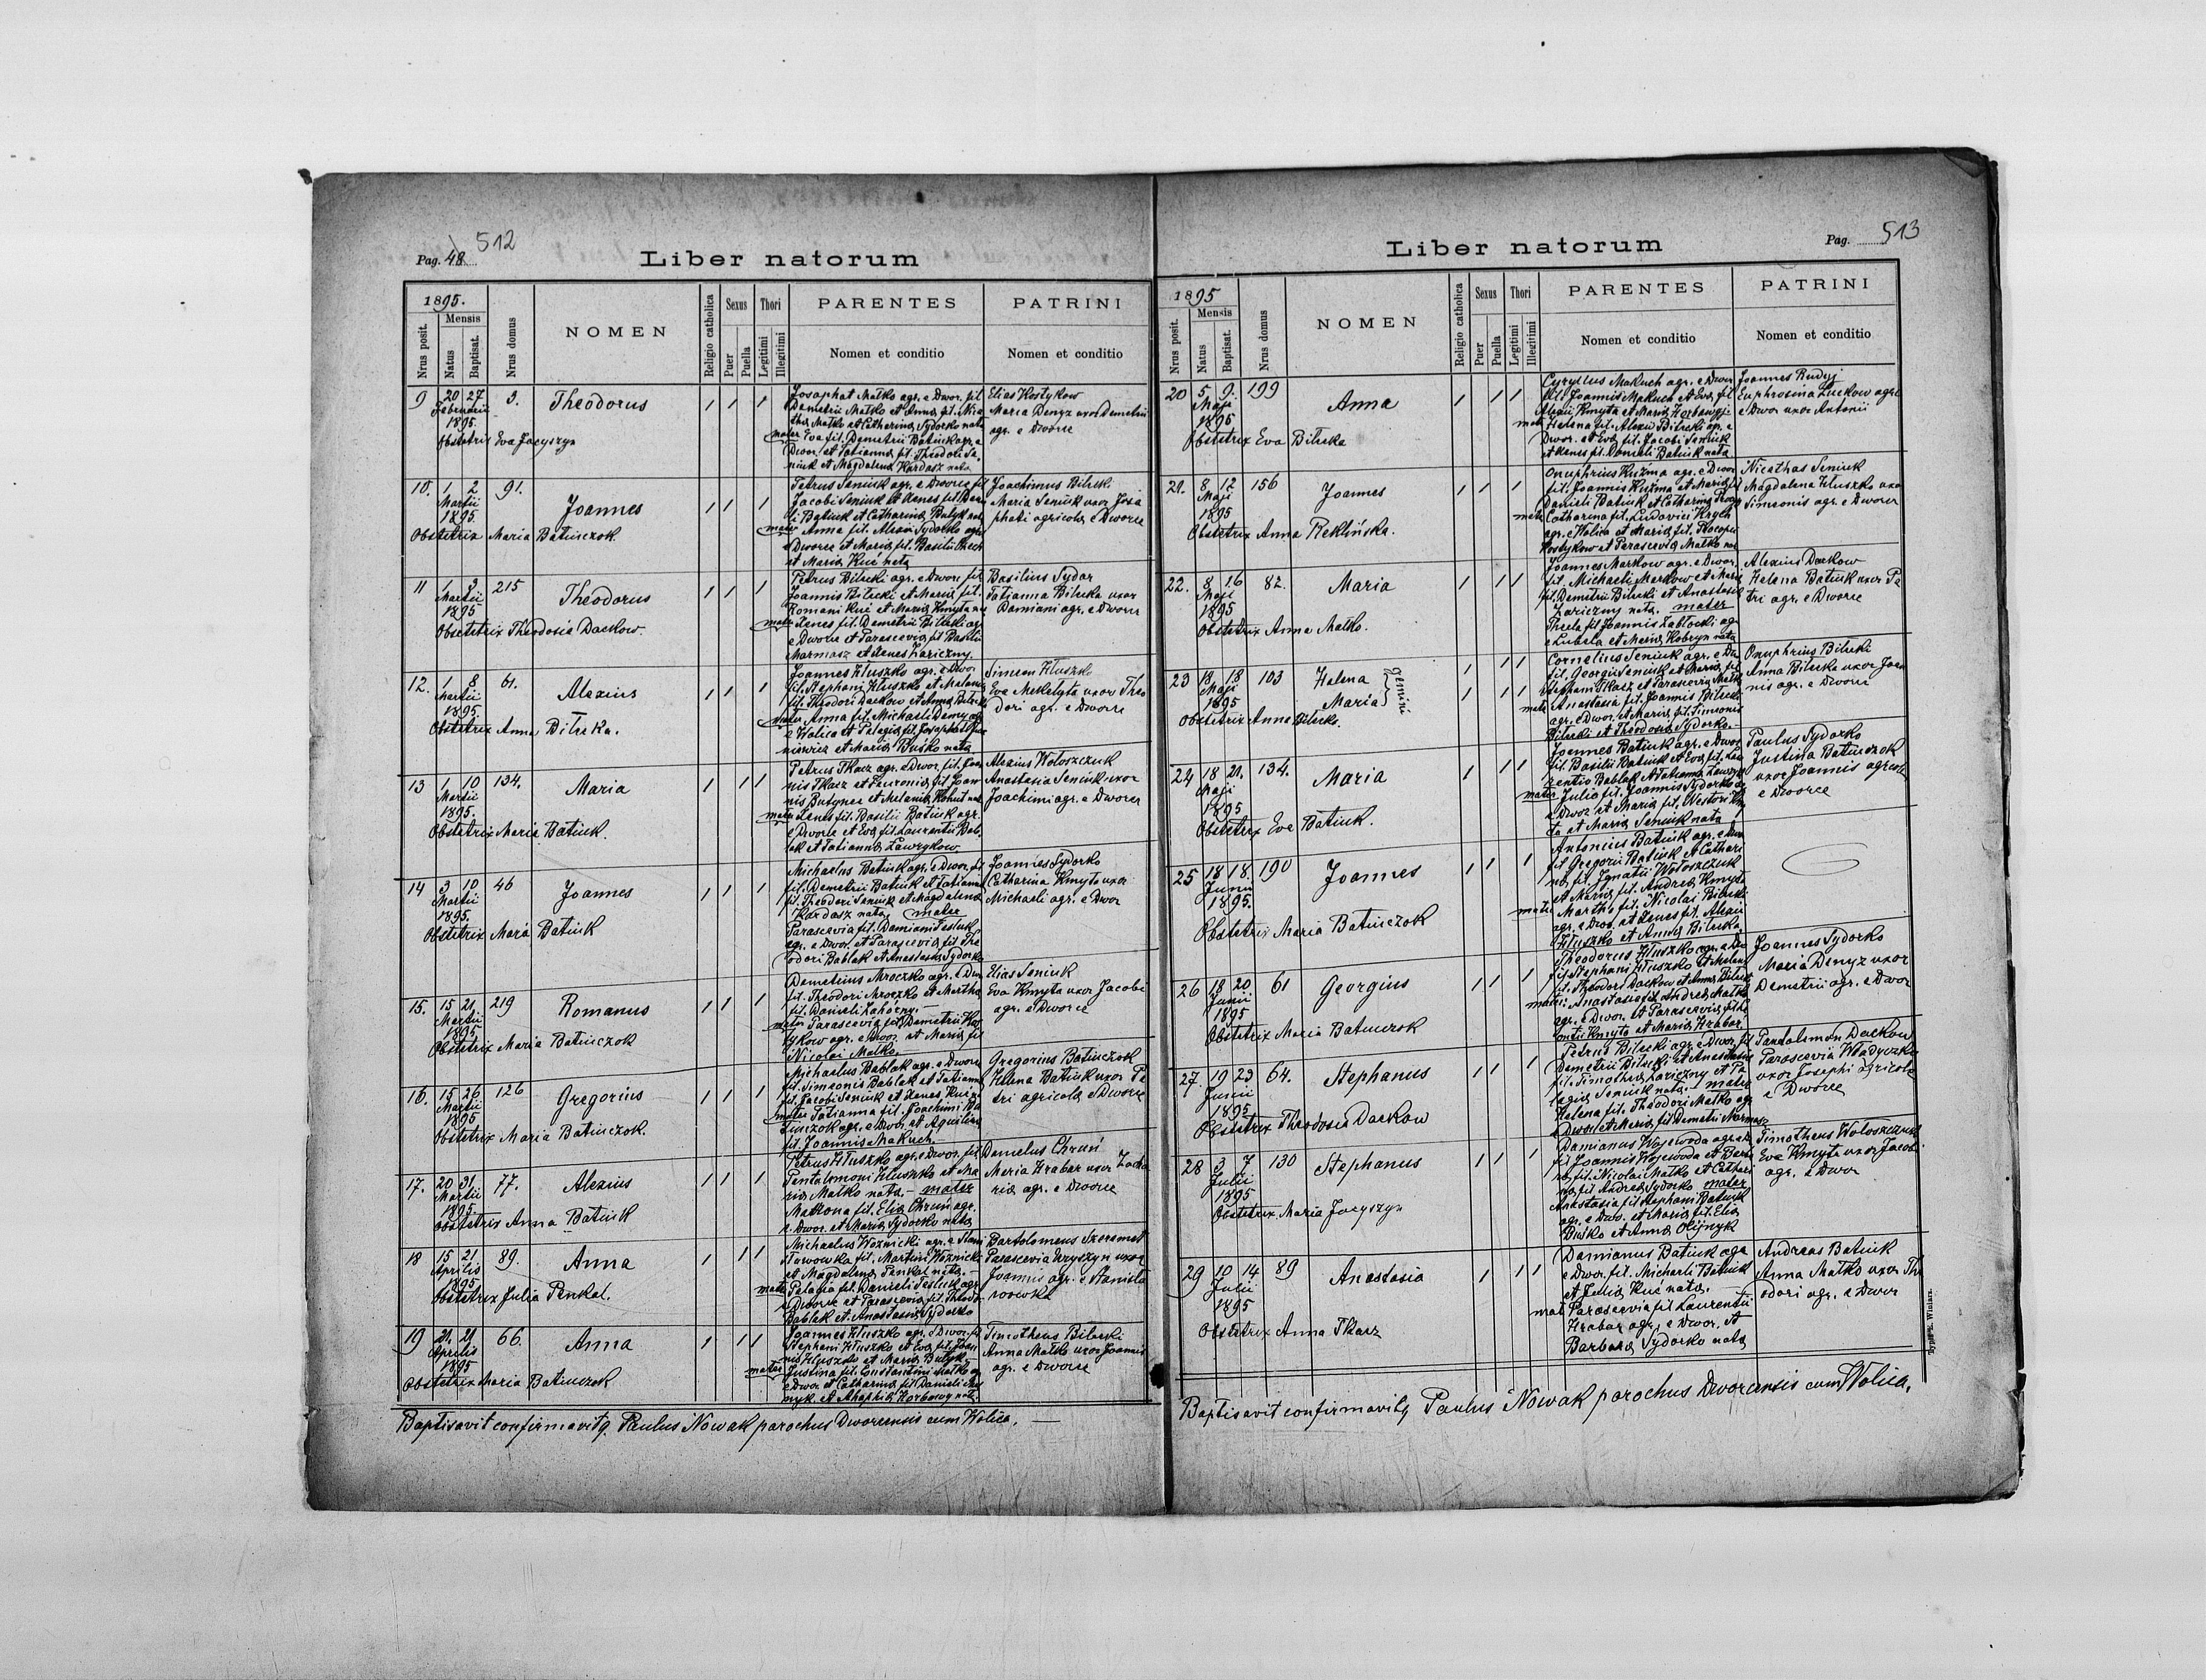 512
Pag. 48
Liber natorum
1895.
Nrus posit.
Mensis
Natus
Baptisat.
Nrus domus
NOMEN
Religio catholica
Sexus
Puer
Puella
Thori
Legitimi
Illegitimi
PARENTES
Nomen et conditio
PATRINI
Nomen et conditio
9 20 27 3. Theodorus
Februarii
1895.
Obstetrix Eva Jacyszyn
Josaphat Matko agr. e Dwor. fil
Demetrii Matko et Anna fil. Nice
tha Matko et Catharina Sydorko nata
mater Eva fil. Demetrii Batiuk agr. e
Dwor. et Tatianna fil. Theodori Se
niuk et Magdalena Kardasz nata
Elias Kostykow
Maria Denyz uxor Demetrii
agr. e Dworce
10. 1 2 91. Joannes
Martii
1895.
Obstetrix Maria Batiuczok.
Petrus Seniuk agr. e Dworce fil
Jacobi Seniuk et Xenes fil. Dani
li Batiuk et Catharina Butyk nat
mater Anna fil. Alexii Sydorko agr
e Dworce et Maria fil. Basilii
et Maria Kuć nata
Joachimus Bilecki
Maria Seniuk uxor Josa
phati agricola e Dworce
11 1 3 215 Theodorus
Martii
1895
Obstetrix Theodosia Dackow.
Petrus Bilecki agr. e Dwor. fil
Joannis Bilecki et Maria fil.
Romani Kuć et Maria Kmyta na
mater Xenes fil. Demetrii Bilecki ag
e Dworce et Parascevia fil Basilii
Marmasz et Xenes Zariczny.
Basilius Sydor
Tatianna Bilecka uxor
Damiani agr. e Dworce
12. 1 8 61. Alexius
Martii
1895
Obstetrix Anna Bilecka.
Joannes Hłuszko agr. e Dwor
fil. Stephani Hłuszko et Melania
fil. Theodori Dackow et Anna Bilecka
mater Anna fil. Michaeli Demy agr
e Wolica et Pelagia fil. Josaphat
niewicz et Maria Buśko nata
Simeon Hłuszko
Eva Mekelyta uxor Theo
dori agr. e Dworce
13 1 10 134. Maria
Martii
1895.
Obstetrix Maria Batiuk.
Petrus Tkacz agr. e Dwor. fil. Joan
nis Tkacz et Fevronia fil. Joan
nis Butynec et Melania Kohut nat
mater Xenes fil. Basilii Batiuk agr.
e Dworce et Eva fil. Laurentii Bab
lak et Tatianna Ławrykow
Alexius Wołoszczuk
Anastasia Seniuk uxor
Joachimi agr. e Dworce
14 3 10 46 Joannes
Martii
1895.
Obstetrix Maria Batiuk
Michaelus Batiuk agr. e Dwor. fil
fil. Demetrii Batiuk et Tatianna
fil. Theodori Seniuk et Magdalena
Kardasz nata. mater
Parascevia fil. Damiani Tesluk
agr. e Dwor. et Parascevia fil The
odori Bablak et Anastasia Sydorko
Joannes Sydorko
Catharina Kmyta uxor
Michaeli agr. e Dwor
15. 15 21 219 Romanus
Martii
1895
Obstetrix Maria Batiuczok
Demetrius Mroczko agr. e Dwo
fil. Theodori Mroczko et Martha
fil. Danieli Zahoczny.
mater Parascevia fil. Demetrii Kos
tykow agr. e Dwor. et Maria fil
Nicolai Matko.
Elias Seniuk
Eva Kmyta uxor Jacobi
agr. e Dworce
16. 15 26 126 Gregorius
Martii
1895
Obstetrix Maria Batiuczok.
Michaelus Bablak agr. e Dworce
fil. Simeonis Bablak et Tatianna
fil. Jacobi Seniuk et Xenes Kuć na
mater Tatianna fil. Joachimi Ba
tiuczok agr. e Dwor. et Aquilina
fil. Joannis Makuch.
Gregorius Batiuczok
Helena Batiuk uxor Pe
tri agricola e Dworce
17. 20 31 77. Alexius
Martii
1895.
Obstetrix Anna Batiuk
Petrus Hłuszko agr. e Dwor. fil
Pantalemoni Hłuszko et Ma
ria Matko nata.- mater
Matrona fil. Elia Chruń agr.
e Dwor. et Maria Sydorko nata
Danielus Chruń
Maria Hrabar uxor Zacha
ria agr. e Dworce
18 15 21 89. Anna
Aprilis
1895
Obstetrix Julia Penkal.
Michaelus Woznicki agr. e Stani
sławowka fil. Martini Woznicki
et Magdalena Penkal nata.-
mater Pelagia fil. Danieli Tesluk agr
e Dworce et Parascevia fil. Theodo
Bablak et Anastasia Sydorko
Bartolomeus Szeremet
Parascevia Hryszyn uxor
Joannis agr. e Stanisła
rowka
19 21. 21 66. Anna
Aprilis
1895
Obstetrix Maria Batiuczok
Joannes Hłuszko agr. e Dwor. fil
Stephani Hłuszko et Eva fil. Joan
nis Hłuszko et Maria Butyk.
mater Justina fil. Constantini Matko ag
e Dwor. et Catharina fil. Danieli
et Ahaphia Horbowy nata
Timotheus Bilecki
Anna Matko uxor Joannis
agr. e Dworce
Baptisavit confirmavitq. Paulus Nowak parochus Dworcensis cum Wolica.
Liber natorum
Pag. 513
1895
Nrus posit.
Mensis
Natus
Baptisat.
Nrus domus
NOMEN
Religio catholica
Sexus
Puer
Puella
Thori
Legitimi
Illegitimi
PARENTES
Nomen et conditio
PATRINI
Nomen et conditio
20 5 9. 199 Anna
Maji
1895
Obstetrix Eva Bilecka
Cyryllus Makuch agr. e Dwor
fil. Joannis Makuch et Eva fil
Alexii Kmyta et Maria Horbowyj
mat Helena fil. Alexii Bilecki agr. e
Dwor. et Eva fil. Jacobi Seniuk
et Xenes fil. Danieli Batiuk nata
Joannes Rudyj
Euphrosina Luckow agr.
e Dwor uxor Antonii
21. 8 12 156 Joannes
Maji
1895
Obstetrix Anna Reklińska.
Onuphrius Kuźma agr. e Dwor
fil. Joannis Kuźma et Maria fil
Danieli Batiuk et Catharina
mater Catharina fil. Ludovici Krych
agr. e Wolica et Maria fil. Procopii
Kostykow et Parascevia Matko nat
Nicethas Seniuk
Magdalena Hłuszko uxor
Simeonis agr. e Dworce
22. 8 16 82. Maria
Maji
1895
Obstetrix Anna Matko.
Joannes Markow agr. e Dwor.
fil. Michaeli Markow et Maria
fil. Demetrii Bilecki et Anastasia
Zariczny nata. mater
Thecla fil Joannis Zabłocki ag
e Lubela et Maria Kobryn nata
Alexius Dackow
Helena Batiuk uxor Pe
tri agr. e Dworce
23 18 18 103 Helena
Maria } gemini
Maji
1895
Obstetrix Anna Bilecka.
Cornelius Seniuk agr. e Dw
fil. Georgii Seniuk et Maria fil
Stephani Tkacz et Parascevia Matko
mater Anastasia fil. Joannis Bilecki
agr. e Dwor. et Maria fil. Simeonis
Bilecki et Theodosia Sydorko.-
Onuphrius Bilecki
Anna Bilecka uxor Joan
nis agr. e Dworce
24 18 21. 134. Maria
Maji
1895
Obstetrix Eva Batiuk.
Joannes Batiuk agr. e Dwor
fil. Basilii Batiuk et Eva fil. Lau
rentio Bablak et Tatianna Ławryk
mater Julia fil. Joannis Sydorko ag
e Dwor. et Maria fil. Nestori Km
ta et Maria Seniuk nata
Paulus Sydorko
Justina Batiuczok
uxor Joannis agricola
e Dworce
25 18 18. 190 Joannes
Junii
1895.
Obstetrix Maria Batiuczok
Antonius Batiuk agr. e Dwor
fil Gregorii Batiuk et Cathari
na fil. Ignatii Wołoszczuk
et Maria fil. Andrea Kmyta
mater Martha fil. Nicolai Bilecki
agr. e Dwor. et Xenes fil. Alexii
Hłuszko et Anna Bilecka
26 18 20 61 Georgius
Junii
1895
Obstetrix Maria Batiuczok
Theodorus Hłuszko agr. e Dw
fil. Stephani Hłuszko et Melan
fil. Theodori Dackow et Anna Bilecka
mater: Anastasia fil. Andrea Matko
agr. e Dwor. et Parascevia fil. Le
ontii Kmyta et Maria Hrabar
Joannes Sydorko
Maria Denyz uxor
Demetrii agr. e Dwor
27. 19 23 64. Stephanus
Junii
1895
Obstetrix Theodosia Dackow
Petrus Bilecki agr. e Dwor. fil
Demetrii Bilecki et Anastasia
fil. Timothea Zariczny et Pe
lagia Seniuk nata.- mater
Helena fil. Theodori Matko agr
e Dwor. et Maria fil. Demetrii Marmasz
Pantalemon Dackow
Parascevia Władyczka
uxor Josephi agricola
e Dworce
28 3 7 130 Stephanus
Julii
1895
Obstetrix Maria Jacyszyn
Damianus Wojewoda agr. e Dw
fil Joannis Wojewoda et Barba
ra fil. Nicolai Matko et Cathari
na fil Andrea Sydorko mater
Anastasia fil Stephani Batiuk
agr. e Dwo. et Maria fil. Elia
Buśko et Anna Olijnyk
Timotheus Wołoszczuk
Eva Kmyta uxor Jacobi
agr. e Dwor
29 10 14 89 Anastasia
Julii
1895
Obstetrix Anna Tkacz
Damianus Batiuk agr
e Dwor. fil. Michaeli Batiuk
et Julia Kuć nata.
mat Parascevia fil Laurentii
Hrabar agr. e Dwor. et
Barbara Sydorko nata
Andreas Batiuk
Anna Matko uxor The
odori agr. e Dwor
Baptisavit confirmavitq Paulus Nowak parochus Dworcensis cum Wolica.
Typis E. Winiarz.